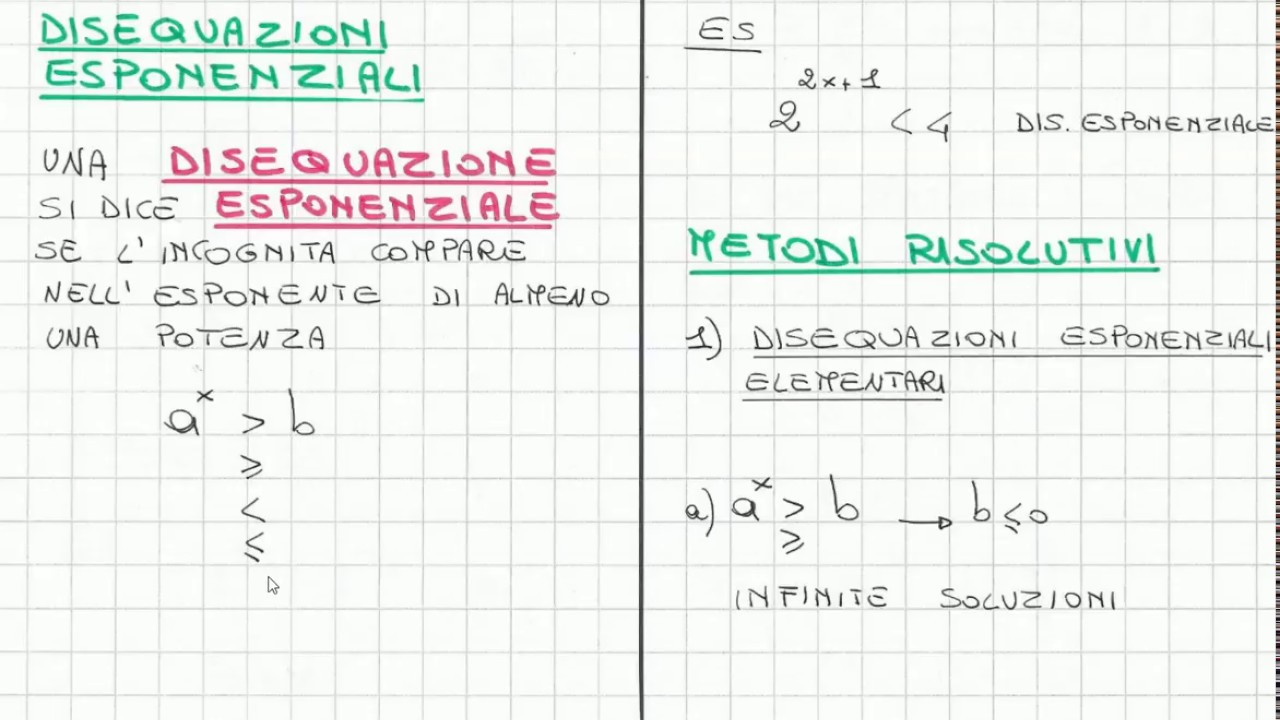 DISEQUAZIONI
ESPONENZIALI
UNA DISEQUAZIONE
SI DICE ESPONENZIALE
SE L'INCOGNITA COMPARE
NELL'ESPONENTE DI ALMENO
UNA POTENZA
aˣ > b
≥
<
≤
ES
2²ˣ⁺¹ < 4 DIS. ESPONENZIALE
METODI RISOLUTIVI
1) DISEQUAZIONI ESPONENZIALI
ELEMENTARI
a) aˣ > b → b ≤ 0
≥
INFINITE SOLUZIONI